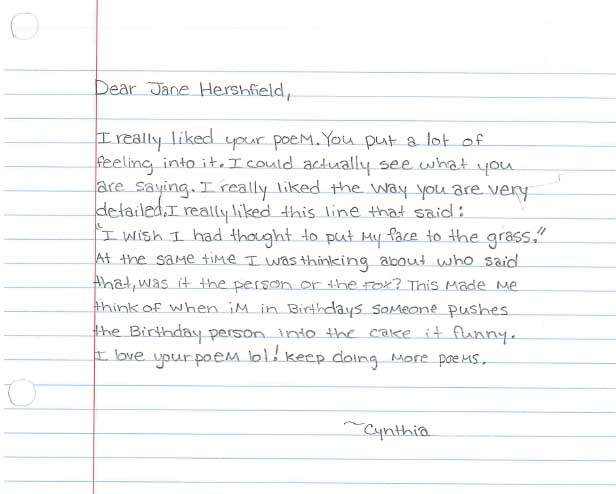 Dear Jane Hershfield,
I really liked your poem. You put a lot of
feeling into it. I could actually see what you
are saying. I really liked the way you are very
detailed, I really liked this line that said:
"I wish I had thought to put my face to the grass."
At the same time I was thinking about who said
that, was it the person or the fox? This made me
think of when im in Birthdays someone pushes
the Birthday person into the cake it funny.
I love your poem lol! keep doing more poems.
~Cynthia